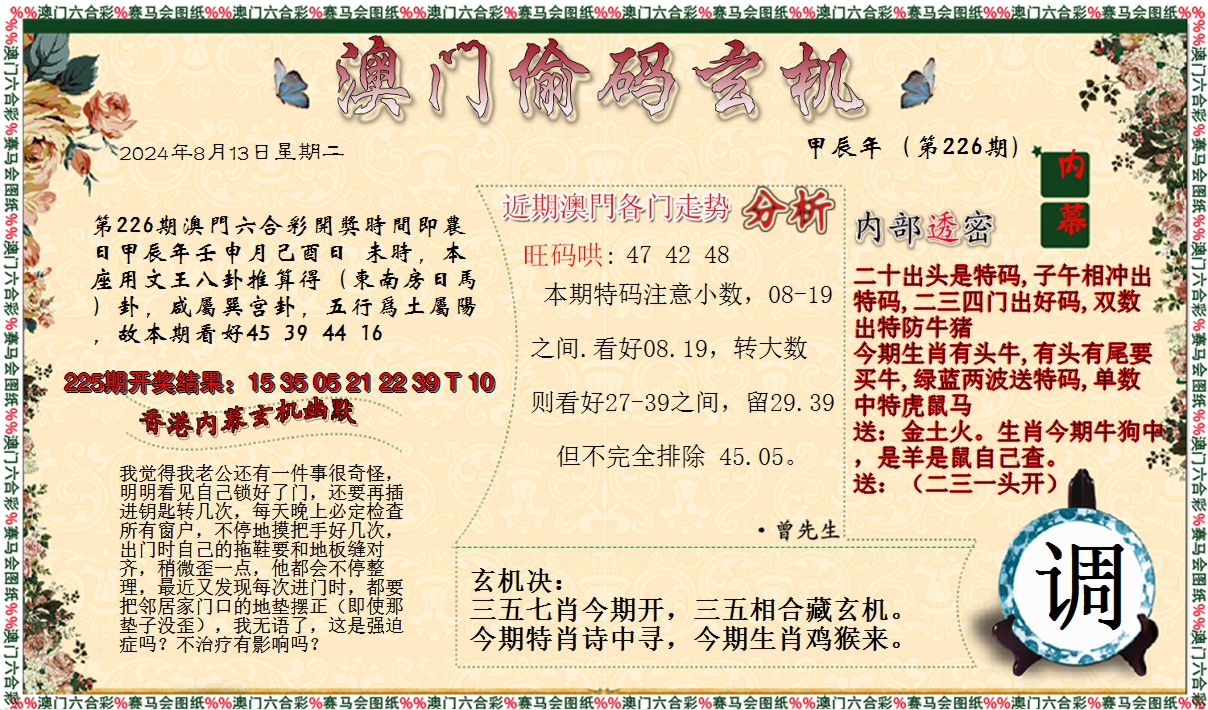 %%澳门六合彩%赛马会图纸%%澳门六合彩%赛马会图纸%%澳门六合彩%赛马会图纸%%澳门六合彩%赛马会图纸%%澳门六合彩%赛马会图纸%%澳门六合彩%赛马会图纸%%
澳门偷码玄机
2024年8月13日星期二
甲辰年（第226期）
内
幕
第226期澳門六合彩開獎時間即農
日甲辰年壬申月己酉日 未時，本
座用文王八卦推算得（東南房日馬
）卦，咸屬巽宫卦，五行爲土屬陽
，故本期看好45 39 44 16
225期开奖结果：15 35 05 21 22 39 T 10
香港内幕玄机幽默
我觉得我老公还有一件事很奇怪，
明明看见自己锁好了门，还要再插
进钥匙转几次，每天晚上必定检查
所有窗户，不停地摸把手好几次，
出门时自己的拖鞋要和地板缝对
齐，稍微歪一点，他都会不停整
理，最近又发现每次进门时，都要
把邻居家门口的地垫摆正（即使那
垫子没歪），我无语了，这是强迫
症吗？不治疗有影响吗？
近期澳門各门走势 分析
旺码哄: 47 42 48
本期特码注意小数，08-19
之间.看好08.19，转大数
则看好27-39之间，留29.39
但不完全排除 45.05。
·曾先生
内部透密
二十出头是特码,子午相冲出
特码,二三四门出好码,双数
出特防牛猪
今期生肖有头牛,有头有尾要
买牛,绿蓝两波送特码,单数
中特虎鼠马
送：金土火。生肖今期牛狗中
，是羊是鼠自己查。
送：（二三一头开）
玄机决：
三五七肖今期开，三五相合藏玄机。
今期特肖诗中寻，今期生肖鸡猴来。
调
%%澳门六合彩%赛马会图纸%%澳门六合彩%赛马会图纸%%澳门六合彩%赛马会图纸%%澳门六合彩%赛马会图纸%%澳门六合彩%赛马会图纸%%澳门六合彩%赛马会图纸%%